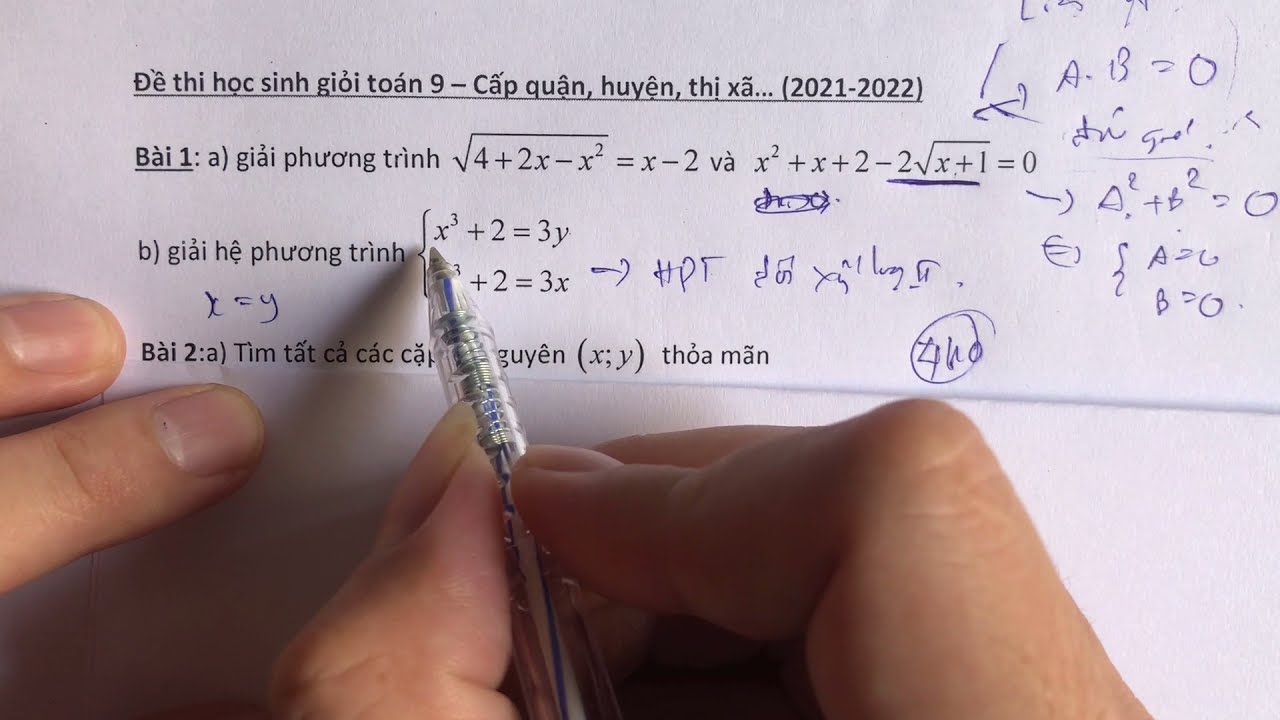 Đề thi học sinh giỏi toán 9 – Cấp quận, huyện, thị xã... (2021-2022)
A. B = 0
Bài 1: a) giải phương trình √(4+2x−x²) = x−2 và x²+x+2−2√(x+1) = 0
→ A² + B² = 0
b) giải hệ phương trình { x³ + 2 = 3y
³ + 2 = 3x → HPT đối xứng loại II.
⇔ { A = 0
B = 0.
x = y
Bài 2:a) Tìm tất cả các nguyên (x; y) thỏa mãn